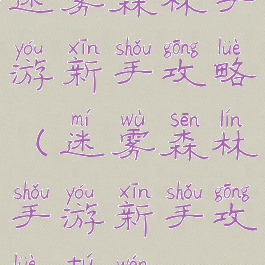 迷雾森林手
yóu xīn shǒu gōng lüè
游新手攻略
mí wù sēn lín
（迷雾森林
shǒu yóu xīn shǒu gōng
手游新手攻
lüè wán